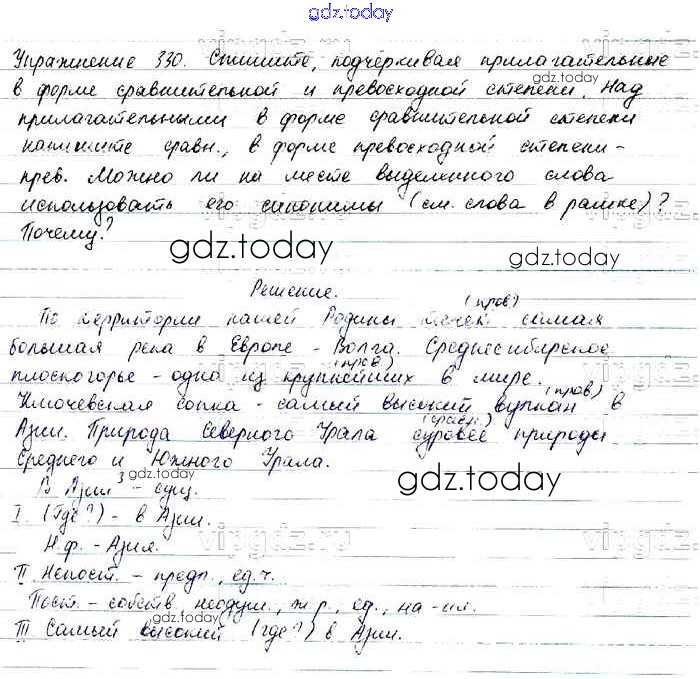 gdz.today
Упражнение 330. Спишите, подчёркивая прилагательные
в форме сравнительной и превосходной степени. Над
прилагательными в форме сравнительной степени
напишите сравн., в форме превосходной степени -
прев. Можно ли на месте выделенного слова
использовать его синонимы (см. слова в рамке)?
Почему?
gdz.today
Решение.
(прев)
По территории нашей Родины течёт самая
большая река в Европе - Волга. Среднесибирское
(прев)
плоскогорье - одна из крупнейших в мире.
(прев)
Ключевская сопка - самый высокий вулкан в
(сравн.)
Азии. Природа Северного Урала суровее природы
Среднего и Южного Урала.
В Азии³ - сущ.
gdz.today
I. (Где?) - в Азии.
Н.ф. - Азия.
II Непост. - предл., ед.ч.
Пост. - собств., неодуш., ж.р., ед., на -ия.
III Самый высокий (где?) в Азии.